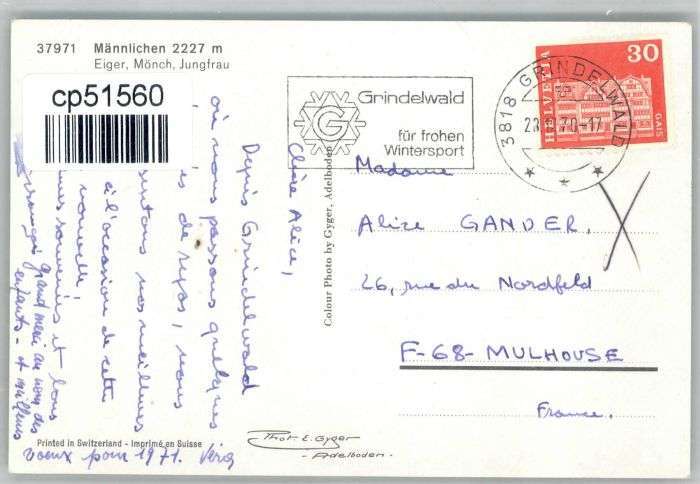 37971 Männlichen 2227 m
Eiger, Mönch, Jungfrau
cp51560
Grindelwald
G
für frohen
Wintersport
3818 GRINDELWALD
70-17
HELVETIA
30
GAIS
Colour Photo by Gyger, Adelboden
Madame
Alice GANDER.
26, rue du Nordfeld
F-68-MULHOUSE
France.
Chère Alice,
Depuis Grindelwald
où nous passons quelques
de repos, nous
nos meilleurs
à l'occasion de cette
nouvelle
souvenirs et bons
Grand merci au nom des
enfants - et meilleurs
voeux pour 1971.
Printed in Switzerland - Imprimé en Suisse
Phot. E. Gyger
- Adelboden -